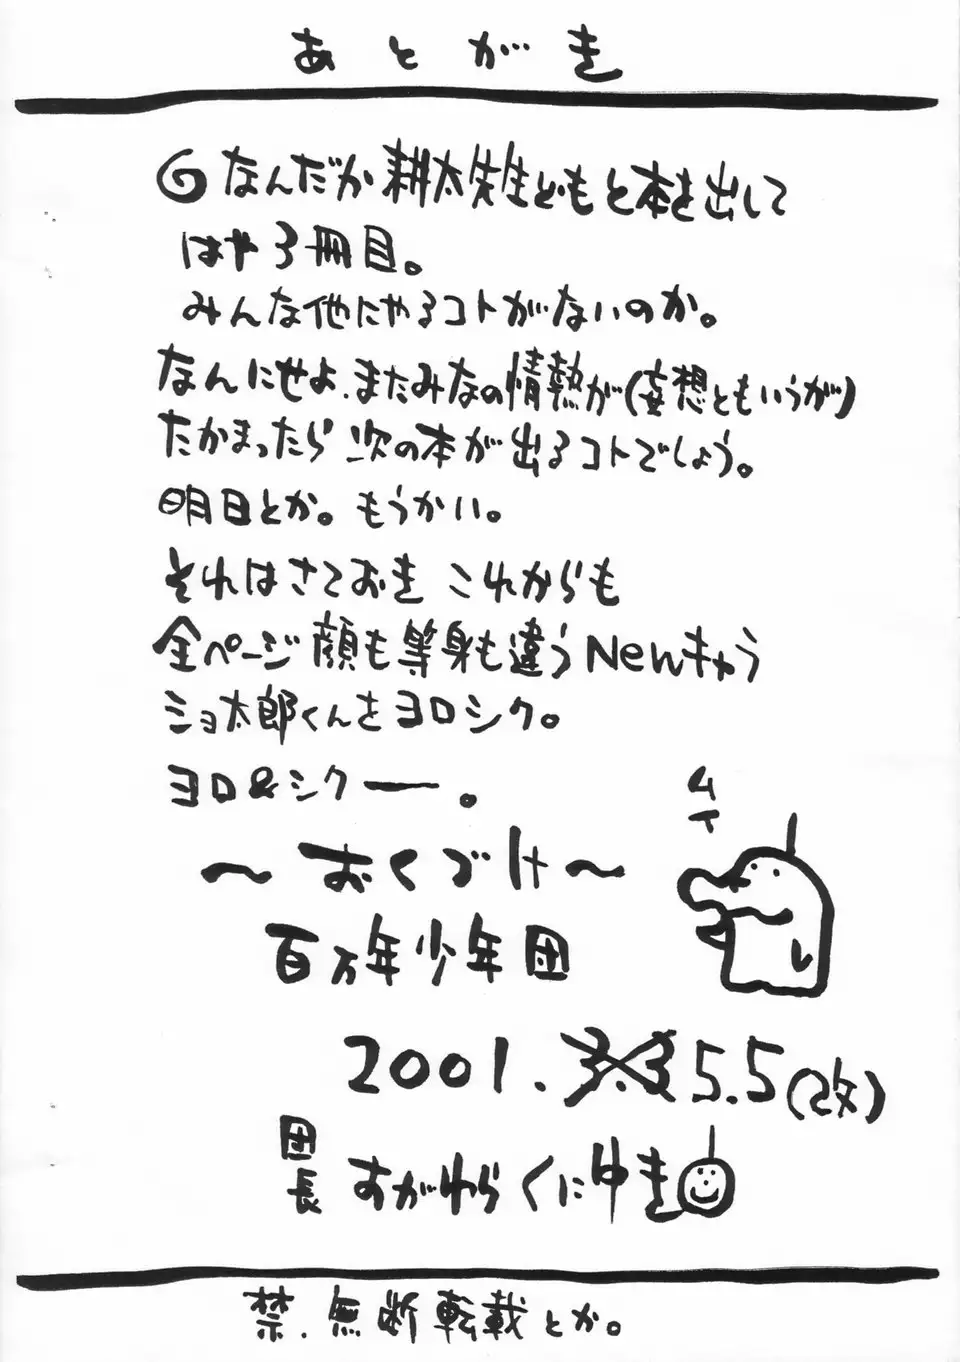 あとがき
なんだか耕太先生どもと本を出して
はや3冊目。
みんな他にやるコトがないのか。
なんにせよ、またみなの情熱が(妄想ともいうが)
たかまったら次の本が出るコトでしょう。
明日とか。もうかい。
それはさておき これからも
全ページ顔も等身も違うNewキャラ
ショ太郎くんをヨロシク。
ヨロ&シクー。
〜おくづけ〜
百万年少年団
2001. 3.3 5.5(改)
団長 すがわらくにゆき
禁、無断転載とか。